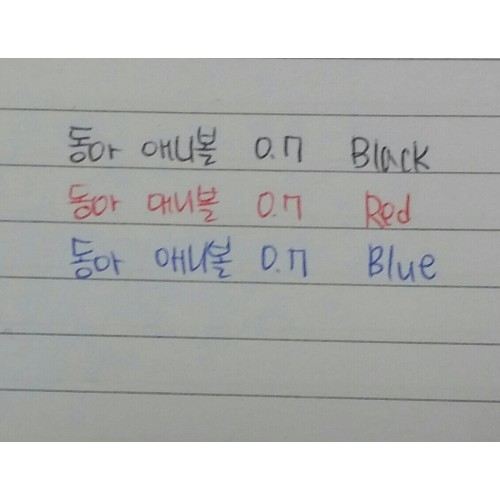 동아 애니볼 0.7 Black
동아 애니볼 0.7 Red
동아 애니볼 0.7 Blue